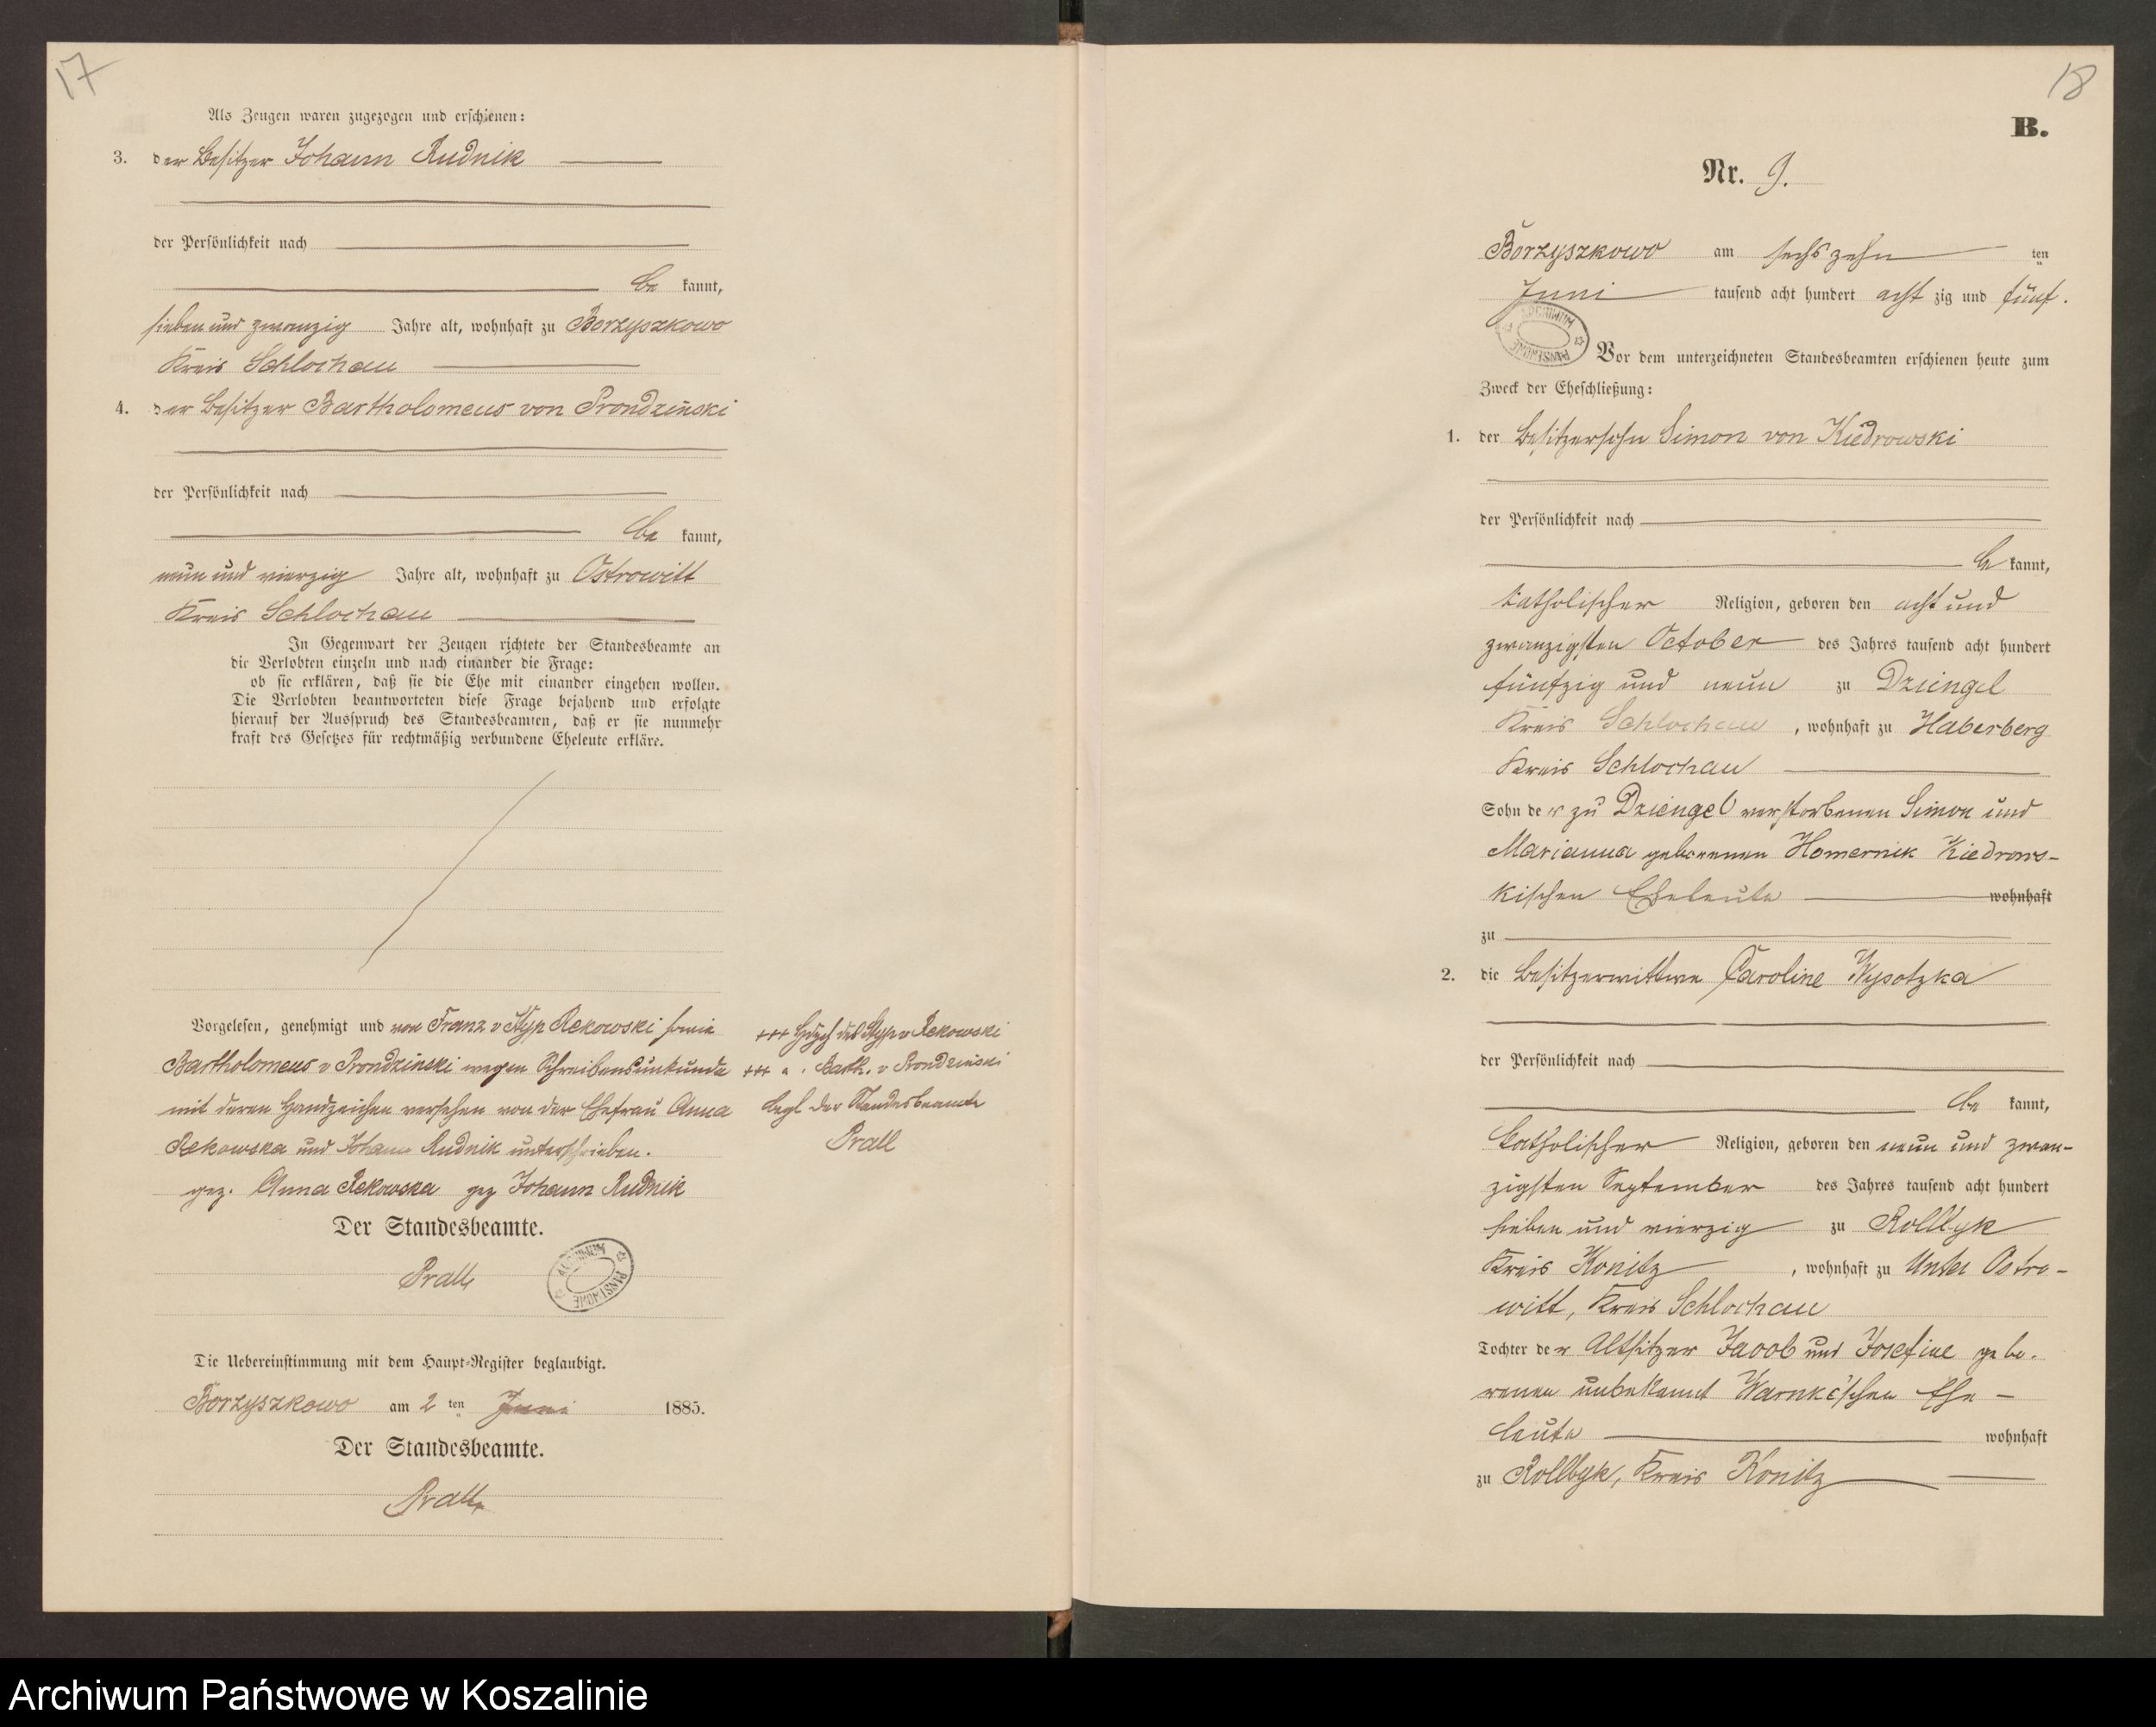 17
Als Zeugen waren zugezogen und erschienen:
3. der Besitzer Johann Rudnik
der Persönlichkeit nach
be kannt,
sieben und zwanzig Jahre alt, wohnhaft zu Borzyszkowo
Kreis Schlochau
4. der Besitzer Bartholomeus von Prondzinski
der Persönlichkeit nach
be kannt,
neun und vierzig Jahre alt, wohnhaft zu Ostrowitt
Kreis Schlochau
In Gegenwart der Zeugen richtete der Standesbeamte an
die Verlobten einzeln und nach einander die Frage:
ob sie erklären, daß sie die Ehe mit einander eingehen wollen.
Die Verlobten beantworteten diese Frage bejahend und erfolgte
hierauf der Ausspruch des Standesbeamten, daß er sie nunmehr
kraft des Gesetzes für rechtmäßig verbundene Eheleute erkläre.
Vorgelesen, genehmigt und von Franz v Styp Rekowski sowie
Bartholomeus v Prondzinski wegen Schreibensunkunde
mit deren Handzeichen versehen von der Ehefrau Anna
Rekowska und Johann Rudnik unterschrieben.
gez. Anna Rekowska gez Johann Rudnik
+++ Hdzch des Styp v Rekowski
+++ " . Barth. v Prondzinski
begl der Standesbeamte
Prall
Der Standesbeamte.
Prall
ARCHIWUM PAŃSTWOWE
Die Uebereinstimmung mit dem Haupt-Register beglaubigt.
Borzyszkowo am 2 ten Juni 1885.
Der Standesbeamte.
Prall
18
B.
Nr. 9.
Borzyszkowo am sechszehn ten
Juni tausend acht hundert acht zig und fünf.
ARCHIWUM PAŃSTWOWE
Vor dem unterzeichneten Standesbeamten erschienen heute zum
Zweck der Eheschließung:
1. der Besitzersohn Simon von Kiedrowski
der Persönlichkeit nach
be kannt,
katholischer Religion, geboren den acht und
zwanzigsten October des Jahres tausend acht hundert
fünfzig und neun zu Dziengel
Kreis Schlochau, wohnhaft zu Haberberg
Kreis Schlochau
Sohn der zu Dziengel verstorbenen Simon und
Marianna geborenen Homernik Kiedrows-
kischen Eheleute wohnhaft
zu
2. die Besitzerwittwe Caroline Wysotzka
der Persönlichkeit nach
be kannt,
katholischer Religion, geboren den neun und zwan-
zigsten September des Jahres tausend acht hundert
sieben und vierzig zu Rollbyk
Kreis Konitz, wohnhaft zu Unter Ostro-
witt, Kreis Schlochau
Tochter der Altsitzer Jacob und Josefine gebo-
renen unbekannt Warnke'schen Ehe-
leute wohnhaft
zu Rollbyk, Kreis Konitz
Archiwum Państwowe w Koszalinie